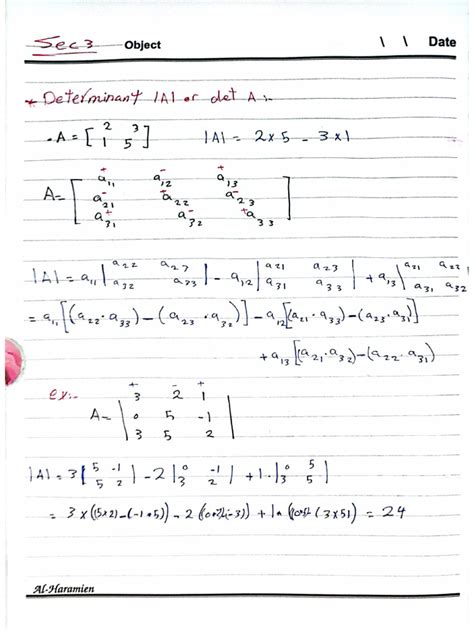 Sec 3 Object \ \ Date
* Determinant |A| or det A :-
- A = [ 2 3
1 5 ] |A| = 2 x 5 - 3 x 1
+ - +
a11 a12 a13
A = - a21 a22 - a23
+ a31 - a32 + a33
|A| = a11 | a22 a23 | - a12 | a21 a23 | + a13 | a21 a22
a32 a33 a31 a33 a31 a32
= a11 [(a22 · a33) - (a23 · a32)] - a12 [(a21 · a33) - (a23 · a31)]
+ a13 [(a21 · a32) - (a22 · a31)
ex:- + - +
3 2 1
A = 0 5 -1
3 5 2
|A| = 3 | 5 -1 | - 2 | 0 -1 | + 1 · | 0 5 |
5 2 3 2 3 5
= 3 x ((5x2) - (-1 x 5)) - 2 = 24
Al-Haramien